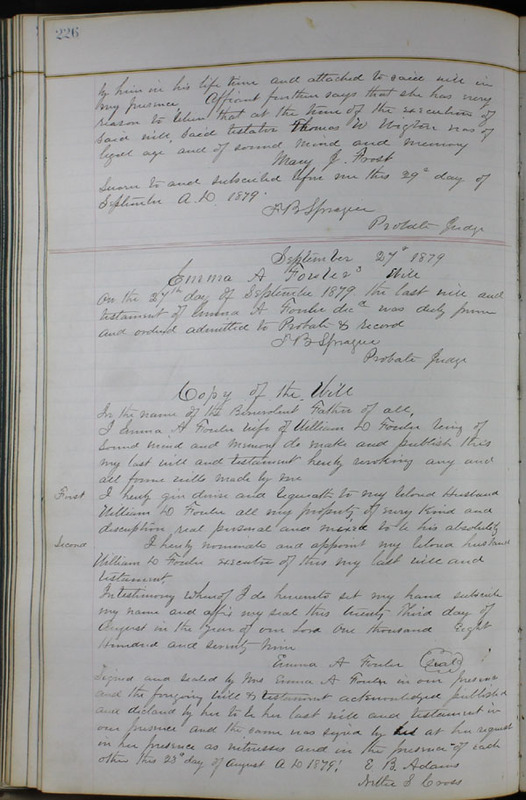 226
by him in his life time and attached to said will in
my presence. Affiant further says that she has every
reason to believe that at the time of the execution of
said will, said testator Thomas W was of
legal age and of sound mind and memory
Mary J. Frost
Sworn to and subscribed before me this 29" day of
September A.D. 1879.
F B Sprague
Probate Judge
September 27" 1879
Emma A Fowler's Will
On the 27th day of September 1879 the last will and
testament of Emma A Fowler decd was duly proven
and ordered admitted to Probate & record
F B Sprague
Probate Judge
Copy of the Will
In the name of the Benevolent Father of all,
I Emma A Fowler wife of William D Fowler being of
sound mind and memory do make and publish this
my last will and testament hereby revoking any and
all former wills made by me
First I hereby give devise and bequeath to my beloved Husband
William D Fowler all my property of every kind and
description real personal and mixed to be his absolutely
Second I hereby nominate and appoint my beloved husband
William D Fowler executor of this my last will and
testament
In testimony whereof I do hereunto set my hand subscribe
my name and affix my seal this twenty third day of
August in the year of our Lord One thousand Eight
Hundred and seventy nine
Emma A Fowler (seal)
Signed and sealed by Mrs Emma A Fowler in our presence
and the foregoing will & testament acknowledged published
and declared by her to be her last will and testament in
our presence and the same was signed by us at her request
in her presence as witnesses and in the presence of each
other this 23" day of August A.D 1879.
E. B. Adams
Nettie S Cross